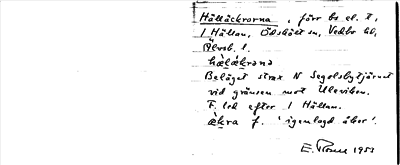 Hållåckrorna, förr bs el. t,
1 Hållan, Ödskölt sn, Vedbo hd,
Älvsb. l.
hålåkrana
Beläget strax N Segolsbytjärnet
vid gränsen mot Uleviken.
F. led efter 1 Hållan.
åkra f. 'igenlagd åker'.
E. 1953